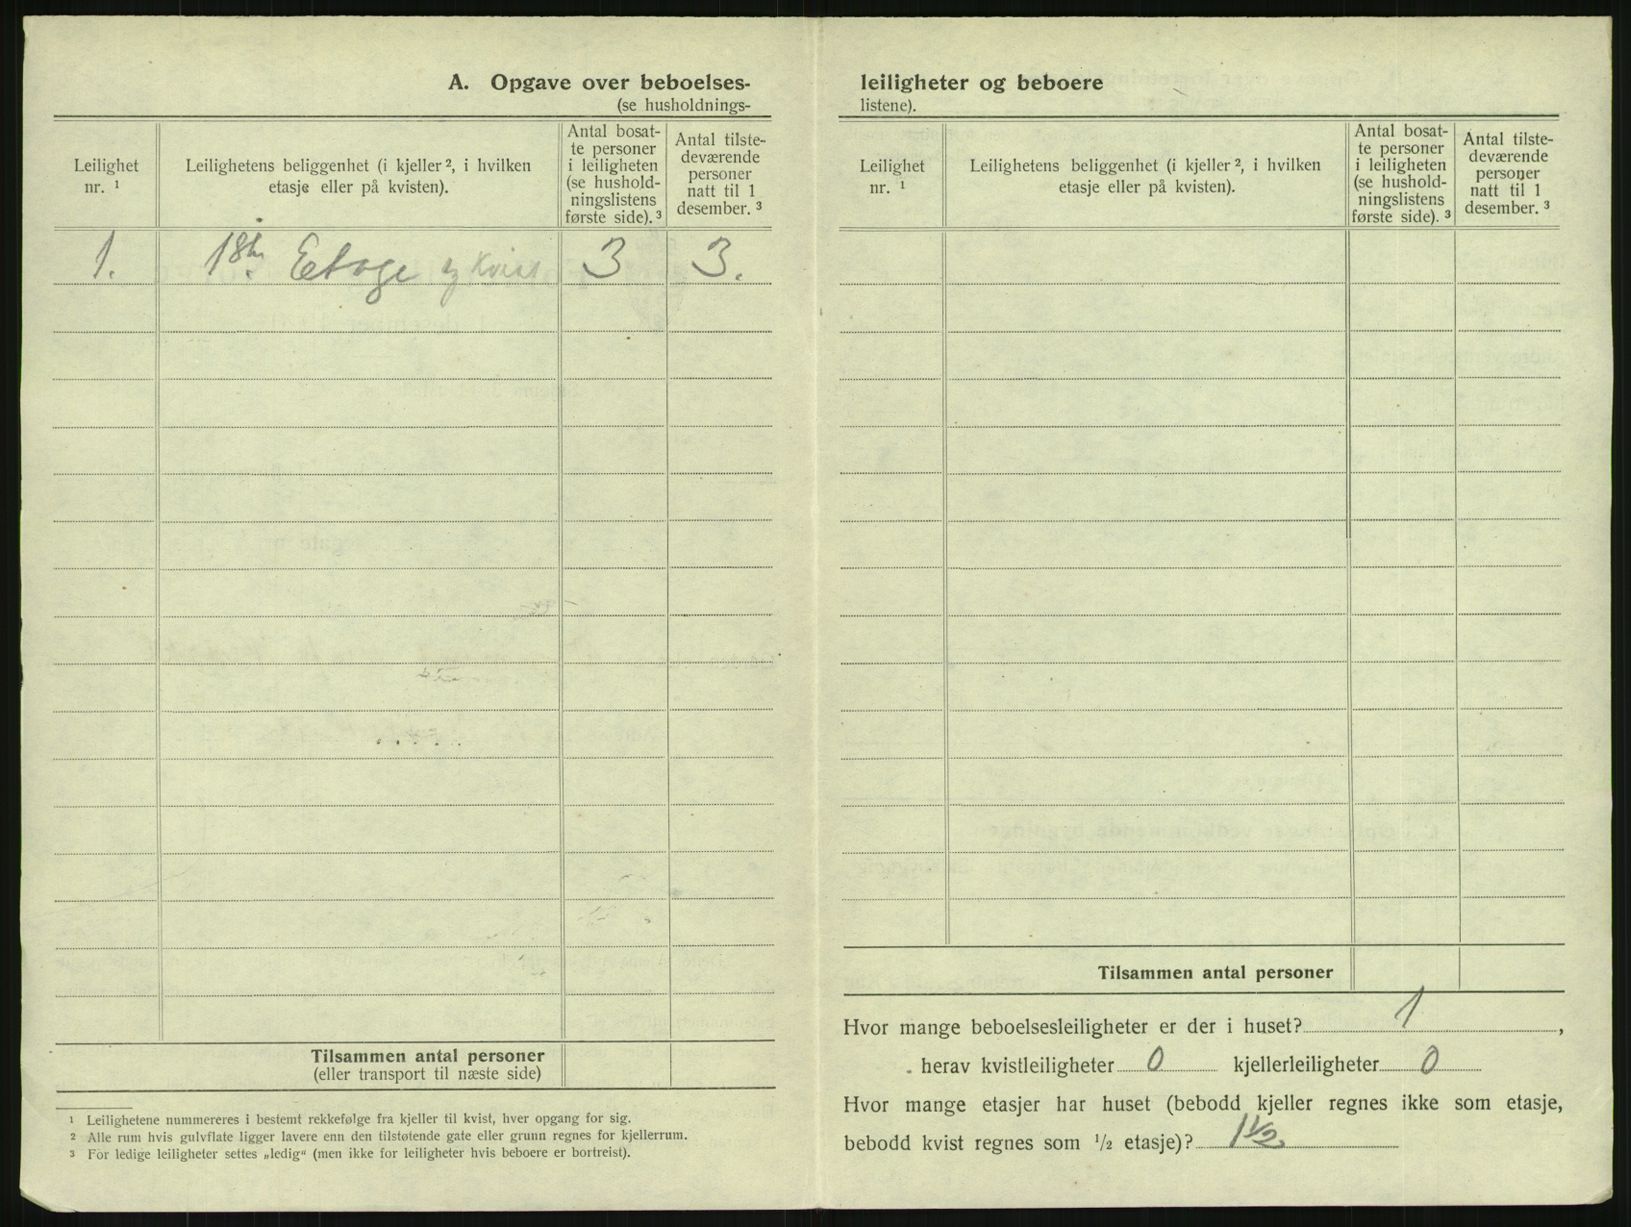 A. Opgave over beboelses-
(se husholdnings-
Leilighet
nr. ¹
Leilighetens beliggenhet (i kjeller ², i hvilken
etasje eller på kvisten).
Antal bosat-
te personer
i leiligheten
(se hushold-
ningslistens
første side). ³
Antal tilste-
deværende
personer
natt til 1
desember. ³
1. Etage og kvist 3 3.
Tilsammen antal personer
(eller transport til næste side)
¹ Leilighetene nummereres i bestemt rekkefølge fra kjeller til kvist, hver opgang for sig.
² Alle rum hvis gulvflate ligger lavere enn den tilstøtende gate eller grunn regnes for kjellerrum.
³ For ledige leiligheter settes „ledig“ (men ikke for leiligheter hvis beboere er bortreist).
leiligheter og beboere
listene).
Leilighet
nr. ¹
Leilighetens beliggenhet (i kjeller ², i hvilken
etasje eller på kvisten).
Antal bosat-
te personer
i leiligheten
(se hushold-
ningslistens
første side). ³
Antal tilste-
deværende
personer
natt til 1
desember. ³
Tilsammen antal personer
Hvor mange beboelsesleiligheter er der i huset? 1,
herav kvistleiligheter 0 kjellerleiligheter 0
Hvor mange etasjer har huset (bebodd kjeller regnes ikke som etasje,
bebodd kvist regnes som ½ etasje)? 1½